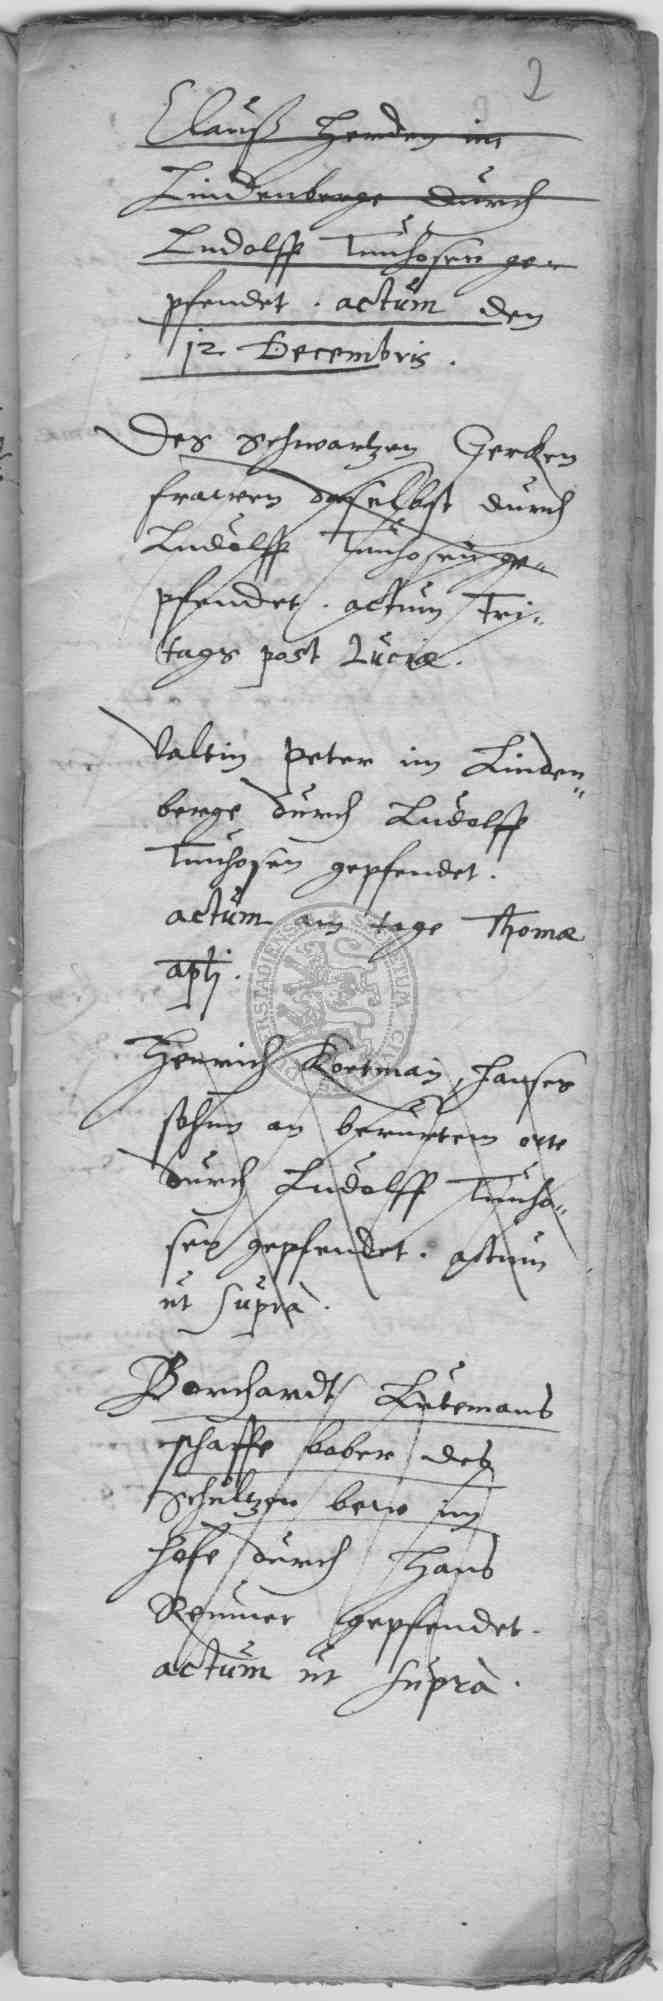 2
Clauß Herden im
Lindenberge durch
Ludolff Tunhosen ge-
pfendet. actum den
12. Decembris.
Des Schwartzen Gerken
frawen daselbst durch
Ludolff Tunhosen ge-
pfendet. actum Fri-
tags post Luciæ.
Valtin Peter im Linden-
berge durch Ludolff
Tunhosen gepfendet.
actum am tage Thomæ
aptj.
Henrich Kortman, Hanses
sohnn an berurtem orte
durch Ludolff Tunho-
sen gepfendet. actum
ut suprà.
Borchardt Lutemans
schaffe baber des
Schultzen im
hofe durch Hans
Remmer gepfendet.
actum ut suprà.